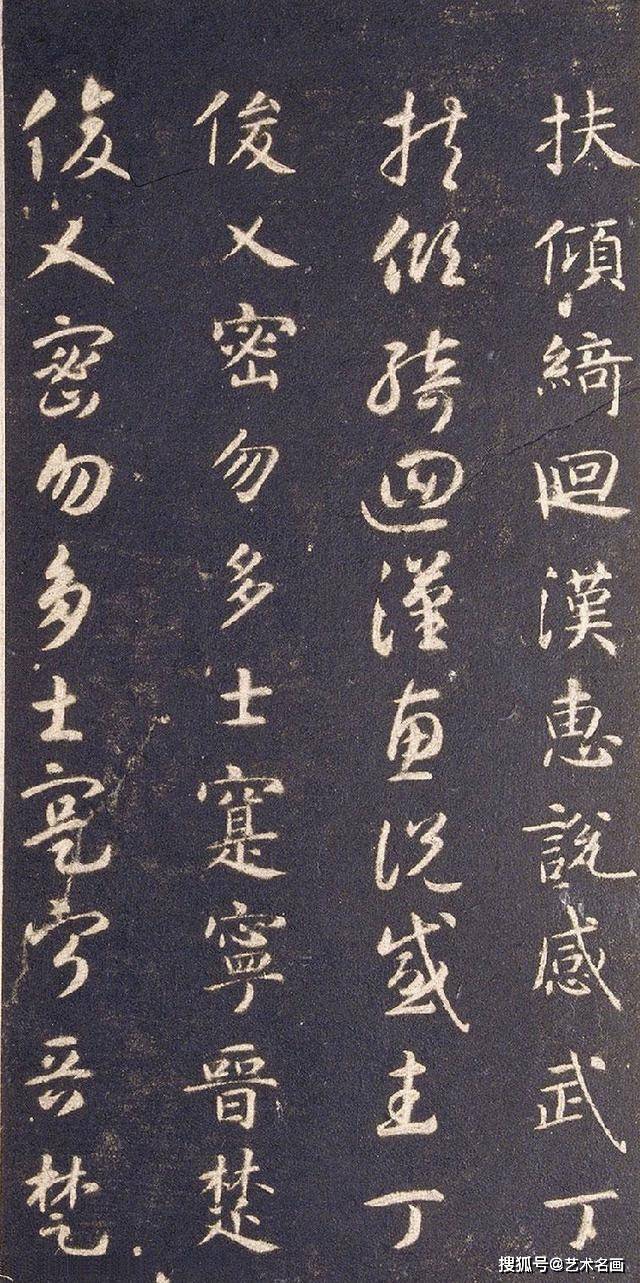 扶傾綺迴漢惠說感武丁
扶傾綺迴漢惠說感武丁
俊乂密勿多士寔寧晉楚
俊乂密勿多士寔寧晉楚
搜狐号@艺术名画